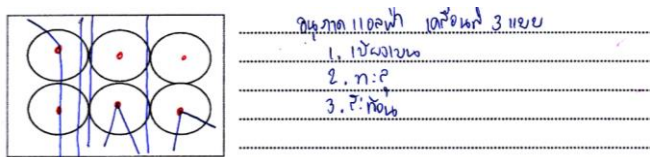 อนุภาคแอลฟา เคลื่อนที่ 3 แบบ
1. เบี่ยงเบน
2. ทะลุ
3. สะท้อน